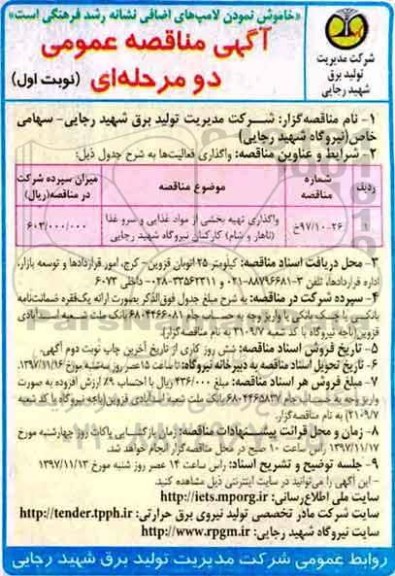 «خاموش نمودن لامپ‌های اضافی نشانه رشد فرهنگی است»
شرکت مدیریت
تولید برق
شهید رجایی
آگهی مناقصه عمومی
دو مرحله‌ای (نوبت اول)
۱- نام مناقصه‌گزار: شرکت مدیریت تولید برق شهید رجایی- سهامی
خاص (نیروگاه شهید رجایی)
۲- شرایط و عناوین مناقصه: واگذاری فعالیت‌ها به شرح جدول ذیل:
ردیف شماره مناقصه موضوع مناقصه میزان سپرده شرکت در مناقصه(ریال)
۱ ۹۷/۱۰-۲۶خ واگذاری تهیه بخشی از مواد غذایی و سرو غذا (ناهار و شام) کارکنان نیروگاه شهید رجایی ۶۰۳/۰۰۰/۰۰۰
۳- محل دریافت اسناد مناقصه: کیلومتر ۲۵ اتوبان قزوین- کرج، امور قراردادها و توسعه بازار،
اداره قراردادها، تلفن ۳-۸۸۷۹۶۶۸۱-۰۲۱ و ۳۳۵۶۲۳۱۱-۰۲۸ داخلی ۶۰۷۳
۴- سپرده شرکت در مناقصه: به شرح مبلغ جدول فوق‌الذکر بصورت ارائه یک‌فقره ضمانت‌نامه
بانکی یا چک بانکی یا واریز وجه به حساب جام ۶۸۰۴۴۶۶۰۸۱ بانک ملت شعبه اسدآبادی
قزوین(باجه نیروگاه با کد شعبه ۲۱۰۹/۷ به نام مناقصه‌گزار).
۵- تاریخ فروش اسناد مناقصه: شش روز کاری از تاریخ آخرین چاپ نوبت دوم آگهی.
۶- تاریخ تحویل اسناد مناقصه به دبیرخانه نیروگاه: تا ساعت ۱۵ عصر روز سه‌شنبه مورخ ۱۳۹۷/۱۱/۱۶.
۷- مبلغ فروش هر اسناد مناقصه: مبلغ ۴۳۶/۰۰۰ ریال با احتساب ۹٪ ارزش افزوده به صورت
واریز وجه به حساب جام ۶۸۰۴۴۶۵۸۳۷ بانک ملت شعبه اسدآبادی قزوین(باجه نیروگاه با کد شعبه
۲۱۰۹/۷) به نام مناقصه‌گزار.
۸- زمان و محل قرائت پیشنهادات مناقصه: زمان بازگشایی پاکات روز چهارشنبه مورخ
۱۳۹۷/۱۱/۱۷ راس ساعت ۱۰ صبح در محل مناقصه‌گزار انجام خواهد شد.
۹- جلسه توضیح و تشریح اسناد: راس ساعت ۱۴ عصر روز شنبه مورخ ۱۳۹۷/۱۱/۱۳
- این آگهی را می‌توانید در سایت اینترنتی ذیل مشاهده کنید
سایت ملی اطلاع‌رسانی: http://iets.mporg.ir
سایت شرکت مادر تخصصی تولید نیروی برق حرارتی: http://tender.tpph.ir
سایت نیروگاه شهید رجایی: http://www.rpgm.ir
روابط عمومی شرکت مدیریت تولید برق شهید رجایی